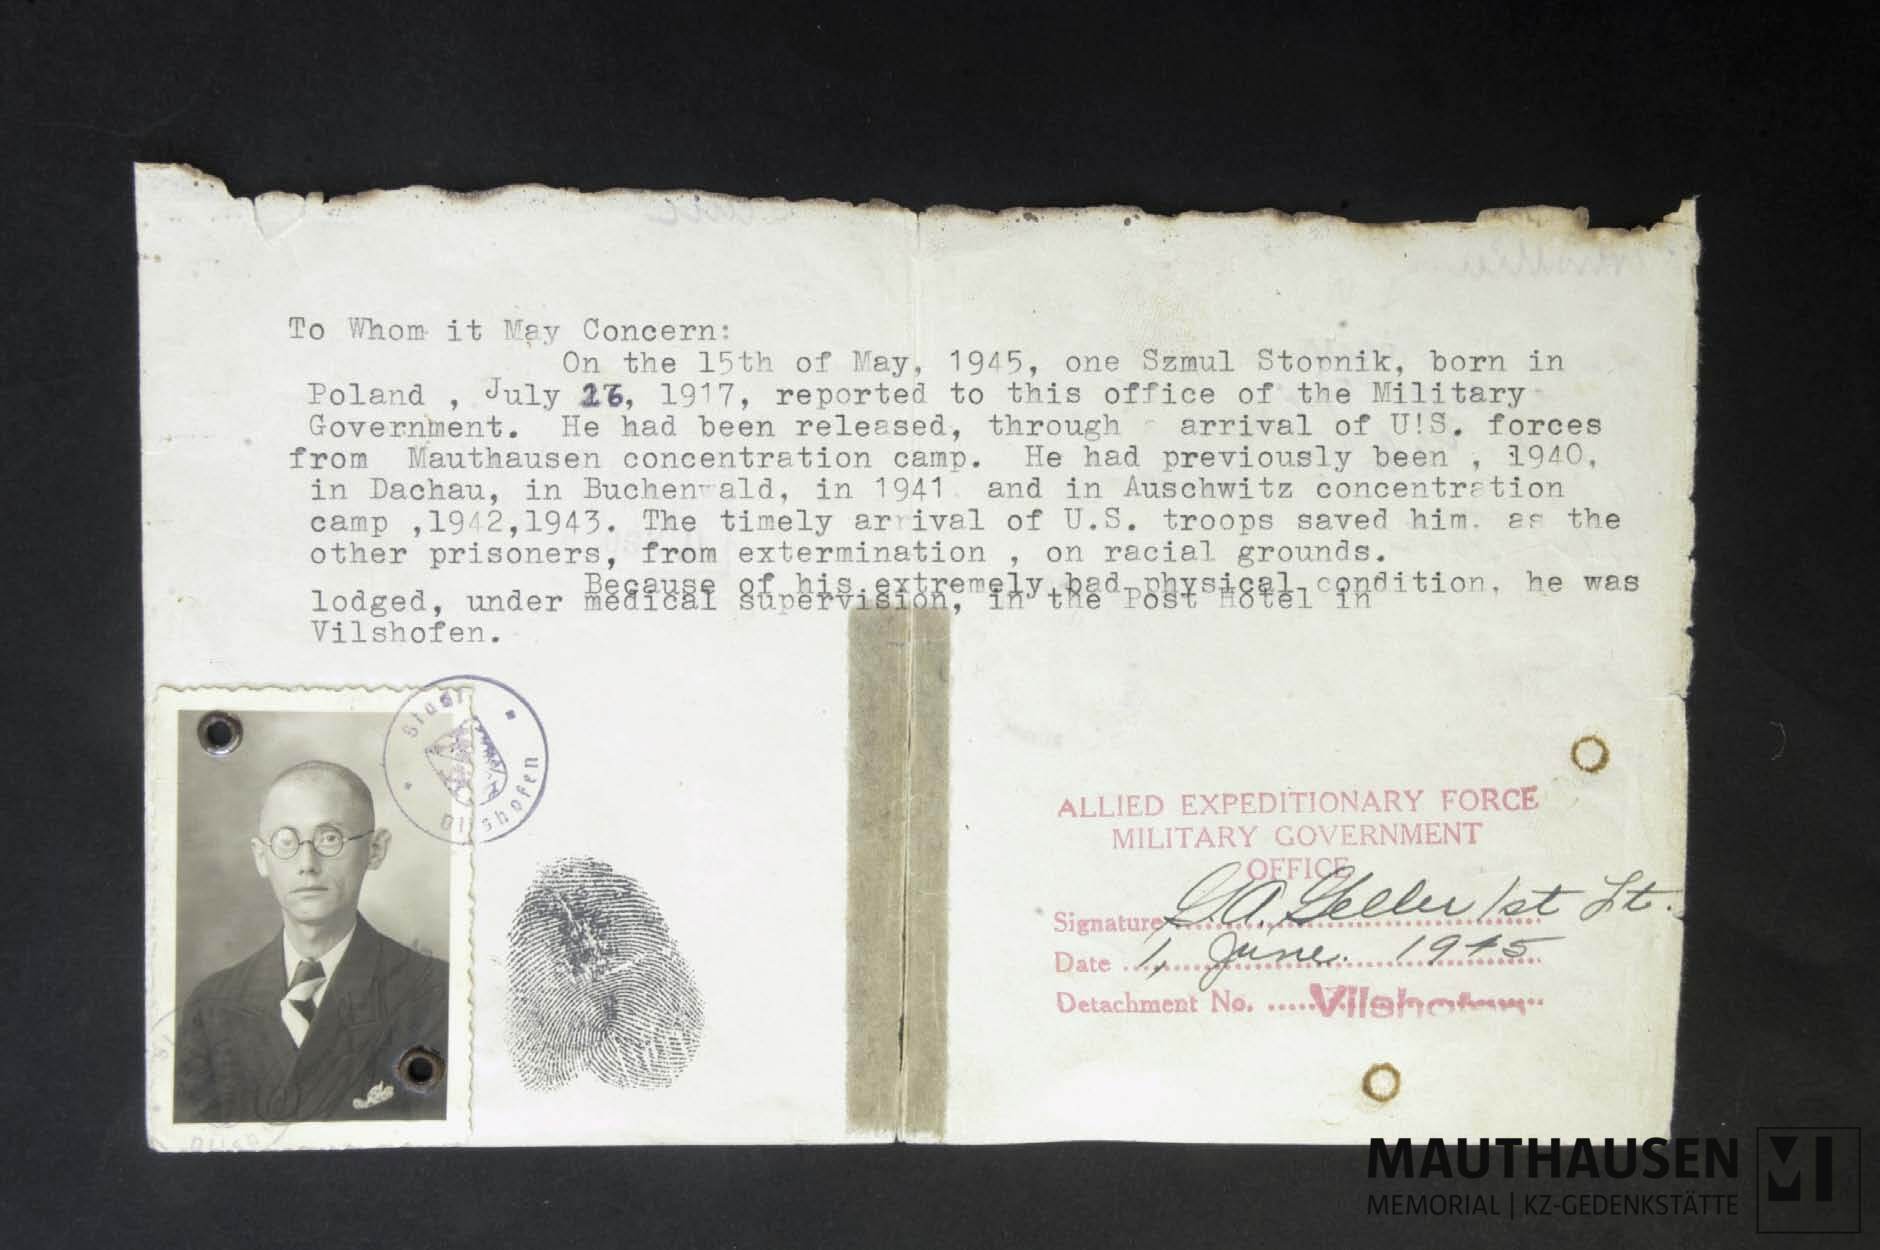 To Whom it May Concern:
On the 15th of May, 1945, one Szmul Stopnik, born in
Poland , July 26, 1917, reported to this office of the Military
Government. He had been released, through arrival of U!S. forces
from Mauthausen concentration camp. He had previously been , 1940,
in Dachau, in Buchenwald, in 1941 and in Auschwitz concentration
camp ,1942,1943. The timely arrival of U.S. troops saved him, as the
other prisoners, from extermination , on racial grounds.
Because of his extremely bad physical condition, he was
lodged, under medical supervision, in the Post Hotel in
Vilshofen.
Stadt
Vilshofen
ALLIED EXPEDITIONARY FORCE
MILITARY GOVERNMENT
OFFICE
Signature G.A. Geller 1st Lt.
Date 1, June. 1945
Detachment No. Vilshofen
MAUTHAUSEN
MEMORIAL | KZ-GEDENKSTÄTTE